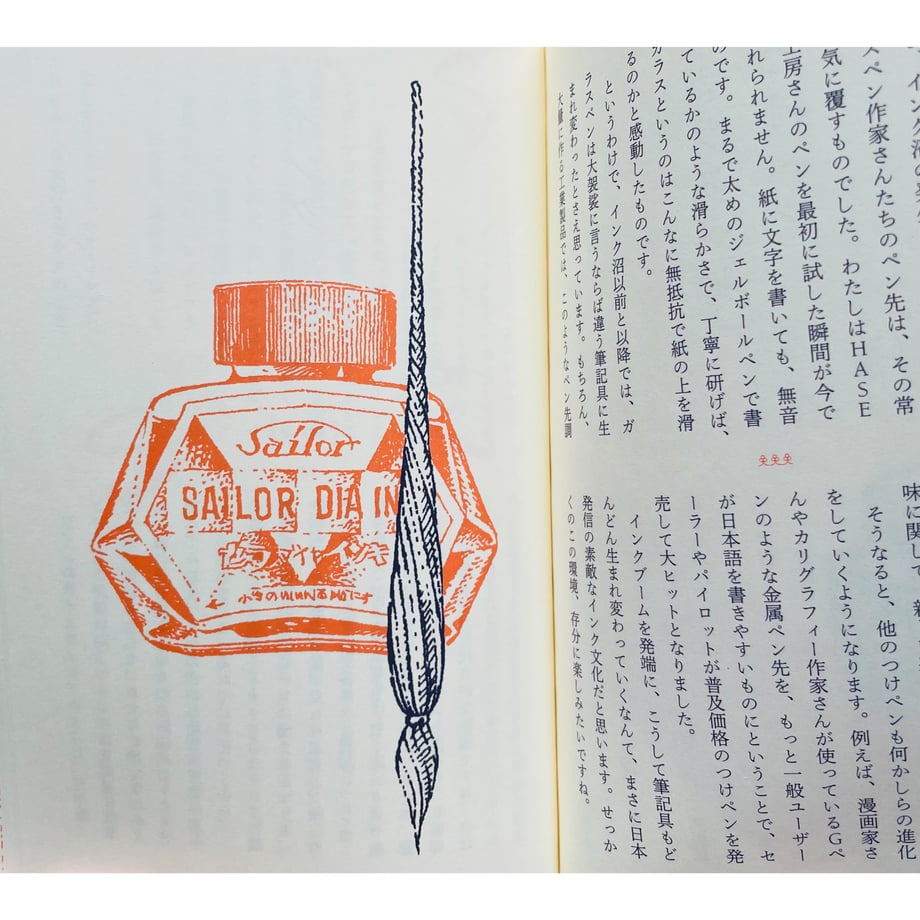 インク沼の
スペン作家さんたちのペン先は、その常
気に覆すものでした。わたしはHASE
工房さんのペンを最初に試した瞬間が今で
れられません。紙に文字を書いても、無音
のです。まるで太めのジェルボールペンで書
ているかのような滑らかさで、丁寧に研げば、
ガラスというのはこんなに無抵抗で紙の上を滑
るのかと感動したものです。
というわけで、インク沼以前と以降では、ガ
ラスペンは大袈裟に言うならば違う筆記具に生
まれ変わったとさえ思っています。もちろん、
大量に作る工業製品では、このようなペン先調
味に関して、
そうなると、他のつけペンも何かしらの進化
をしていくようになります。例えば、漫画家さ
んやカリグラフィー作家さんが使っているGペ
ンのような金属ペン先を、もっと一般ユーザー
が日本語を書きやすいものにということで、セ
ーラーやパイロットが普及価格のつけペンを発
売して大ヒットとなりました。
インクブームを発端に、こうして筆記具もど
んどん生まれ変わっていくなんて、まさに日本
発信の素敵なインク文化だと思います。せっか
くのこの環境、存分に楽しみたいですね。
Sailor
SAILOR DIA IN